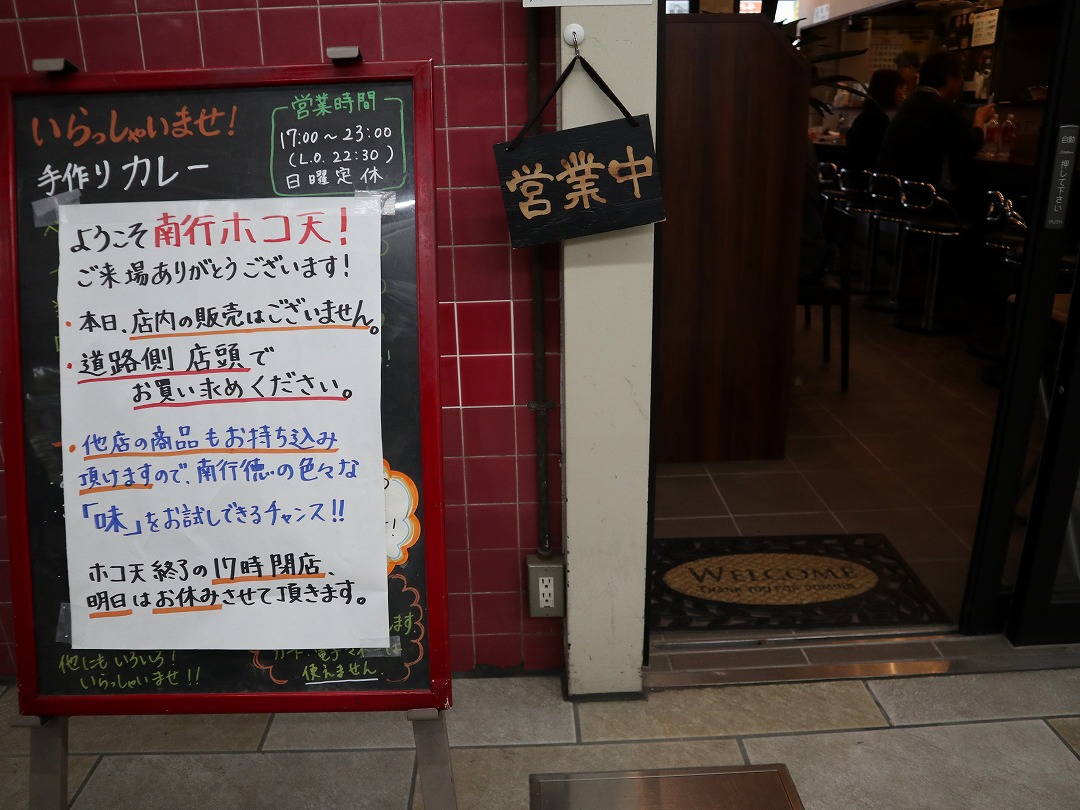 いらっしゃいませ!
手作りカレー
営業時間
17:00~23:00
(L.O. 22:30)
日曜定休
ようこそ南行ホコ天!
ご来場ありがとうございます!
・本日、店内の販売はございません。
・道路側 店頭で
お買い求めください。
・他店の商品もお持ち込み
頂けますので、南行徳の色々な
「味」をお試しできるチャンス!!
ホコ天終了の17時閉店、
明日はお休みさせて頂きます。
他にもいろいろ!
いらっしゃいませ!!
ます。
使えません。
営業中
WELCOME
THANK YOU FOR COMING
自動
押して下さい
PUSH